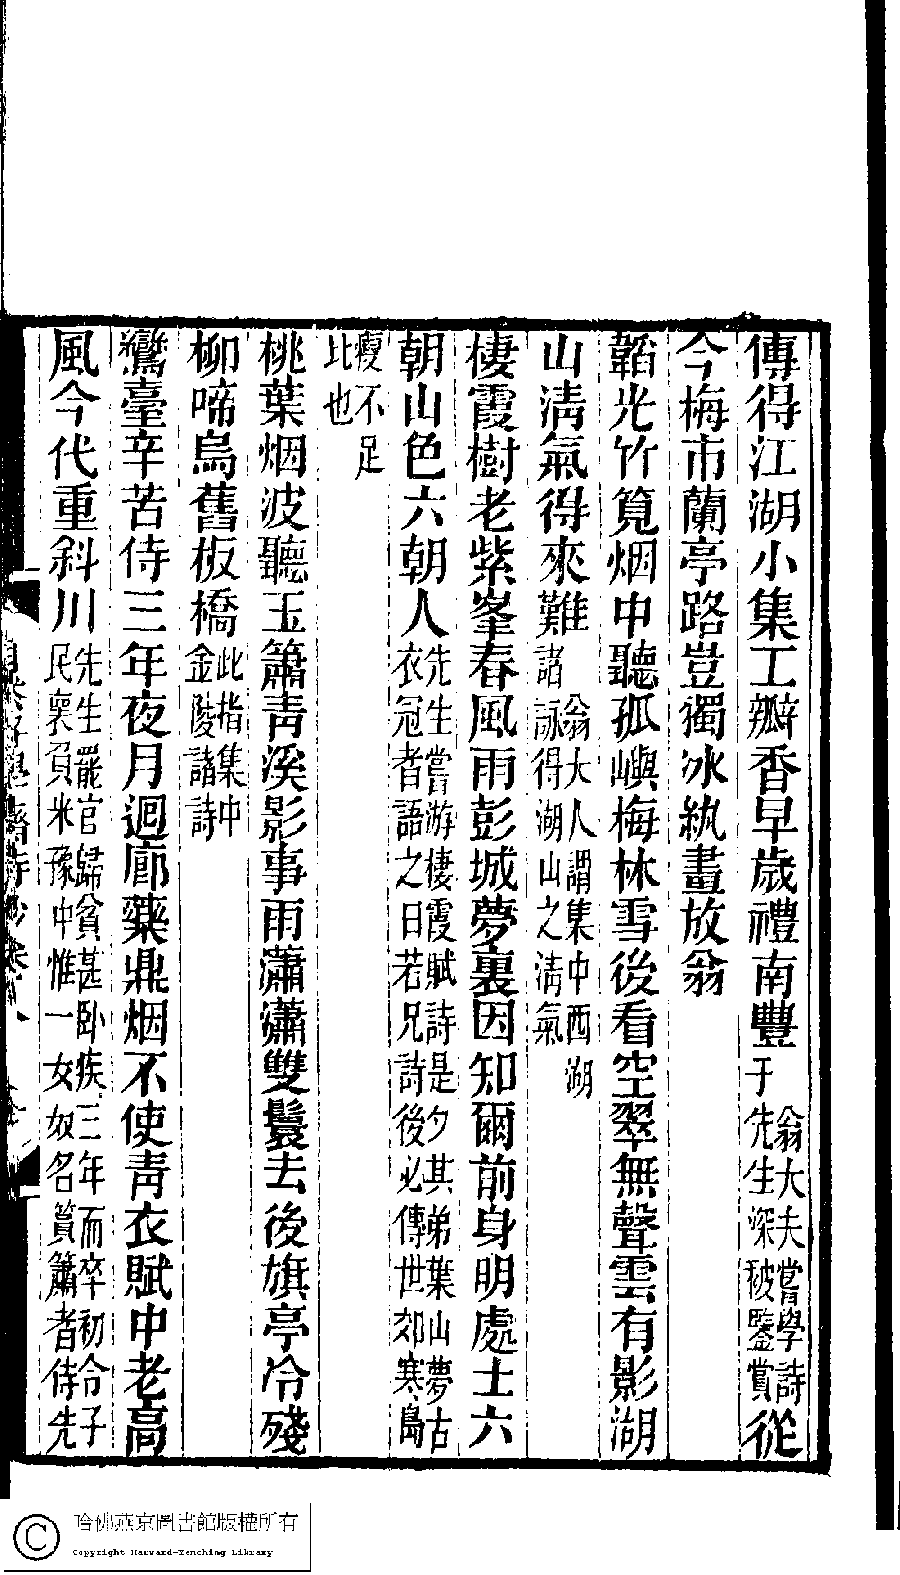 傳得江湖小集工瓣香早歲禮南豐翁大夫嘗學詩于先生深秘鑒賞從
今梅市蘭亭路豈獨冰紈畫放翁
韜光竹筧烟中聽孤嶼梅林雪後看空翠無聲雲有影湖
山淸氣得來難翁大人謂集中西湖諸詠得湖山之淸氣
棲霞樹老紫峯春風雨彭城夢裏因知爾前身明處士六
朝山色六朝人先生嘗游棲霞賦詩是夕其弟葉山夢古衣冠者語之日若兄詩後必傳世郊寒島
瘦不足比也
桃葉烟波聽玉簫靑溪影事雨瀟瀟雙鬟去後旗亭冷殘
柳啼烏舊板橋此指集中金陵諸詩
鸞臺辛苦侍三年夜月迴廊藥鼎烟不使靑衣賦中老高
風今代重斜川先生罷官歸貧甚臥疾三年而卒初令子民襄負米豫中惟一女奴名篔簫者侍先
哈佛燕京圖書館版權所有
Copyright Harvard-Yenching Library